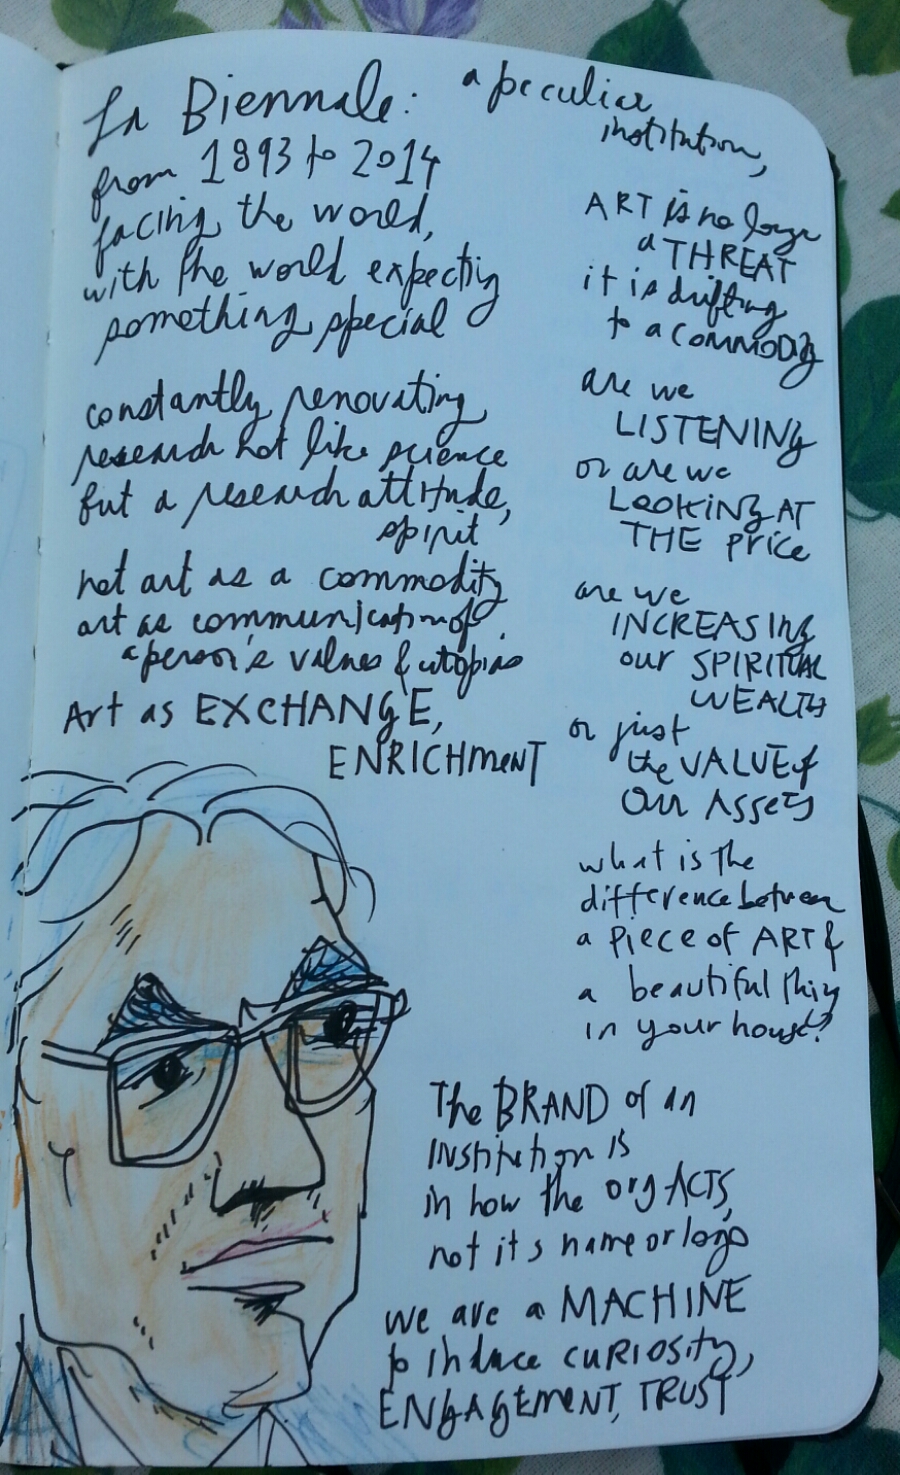 La Biennale:
from 1893 to 2014
facing the world,
with the world expecting
something special
constantly renovating
research not like science
but a research attitude,
spirit
not art as a commodity
art as communication of
a person's values & utopias
Art as EXCHANGE,
ENRICHMENT
a peculiar
institution,
ART is no longer
a THREAT
it is drifting
to a COMMODITY
are we
LISTENING
or are we
LOOKING AT
THE PRICE
are we
INCREASING
our SPIRITUAL
WEALTH
or just
the VALUE of
Our ASSETS
what is the
difference between
a PIECE of ART &
a beautiful thing
in your house?
The BRAND of an
Institution is
in how the org ACTS,
not its name or logo
we are a MACHINE
to induce CURIOSITY,
ENGAGEMENT, TRUST